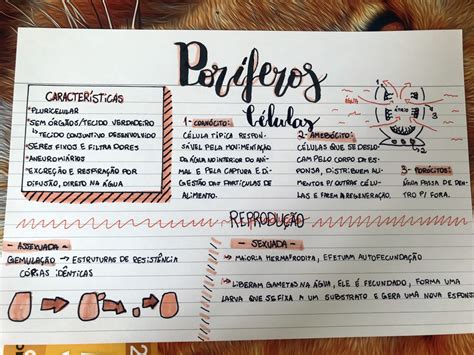 Poríferos
CARACTERÍSTICAS
*PLURICELULAR
*SEM ÓRGÃOS/TECIDO VERDADEIRO
↳TECIDO CONJUNTIVO DESENVOLVIDO
*SERES FIXOS E FILTRADORES
*ANEUROMIÁRIOS
*EXCREÇÃO E RESPIRAÇÃO POR
DIFUSÃO, DIRETO NA ÁGUA
Células
1- COANÓCITO:
CÉLULA TÍPICA RESPON-
SÁVEL PELA MOVIMENTAÇÃO
DA ÁGUA NO INTERIOR DO ANI-
MAL E PELA CAPTURA E DI-
GESTÃO DAS PARTÍCULAS DE
ALIMENTO.
2- AMEBÓCITO:
CÉLULAS QUE SE DESLO-
CAM PELO CORPO DA ES-
PONJA, DISTRIBUEM ALI-
MENTOS P/ OUTRAS CÉLU-
LAS E FAZEM A REGENERAÇÃO.
1
3
2
3- PORÓCITOS:
ÁGUA PASSA DE DEN-
TRO P/ FORA.
REPRODUÇÃO
- ASSEXUADA -
GEMULAÇÃO → ESTRUTURAS DE RESISTÊNCIA
CÓPIAS IDÊNTICAS
- SEXUADA -
↳ MAIORIA HERMAFRODITA, EFETUAM AUTOFECUNDAÇÃO
↳ LIBERAM GAMETAS NA ÁGUA, ELE É FECUNDADO, FORMA UMA
LARVA QUE SE FIXA A UM SUBSTRATO E GERA UMA NOVA